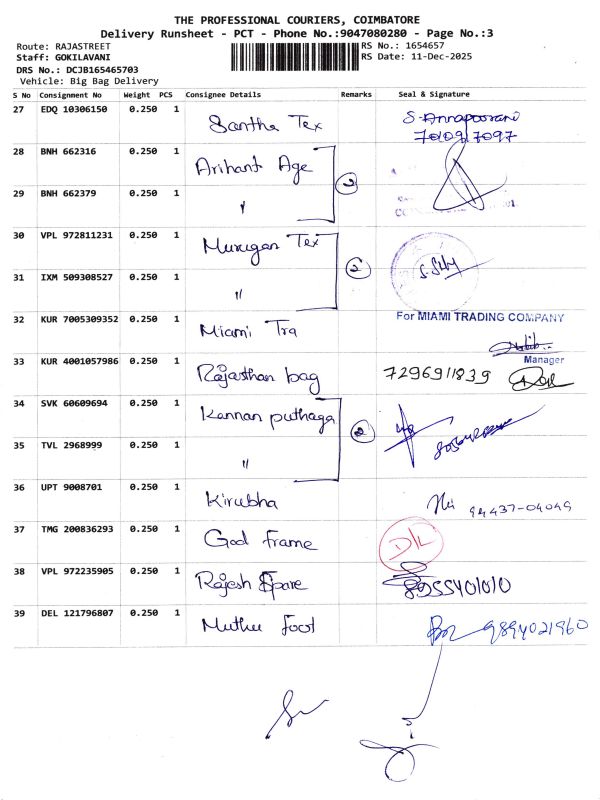 THE PROFESSIONAL COURIERS, COIMBATORE
Delivery Runsheet - PCT - Phone No.:9047080280 - Page No.:3
Route: RAJASTREET RS No.: 1654657
Staff: GOKILAVANI RS Date: 11-Dec-2025
DRS No.: DCJB165465703
Vehicle: Big Bag Delivery
S No Consignment No Weight PCS Consignee Details Remarks Seal & Signature
27 EDQ 10306150 0.250 1 Santha Tex S. Annapoorani
7010917097
28 BNH 662316 0.250 1 Arihant Age
2
29 BNH 662379 0.250 1 "
30 VPL 972811231 0.250 1 Murugan Tex
2
31 IXM 509308527 0.250 1 "
32 KUR 7005309352 0.250 1 Miami Tra For MIAMI TRADING COMPANY
Manager
33 KUR 4001057986 0.250 1 Rajasthan bag 7296911839
34 SVK 60609694 0.250 1 Kannan puthaga
2
35 TVL 2968999 0.250 1 "
36 UPT 9008701 0.250 1 Kirubha 94437-04049
37 TMG 200836293 0.250 1 God frame D/L
38 VPL 972235905 0.250 1 Rajesh Spare 8055401010
39 DEL 121796807 0.250 1 Muthu foot 9894021960